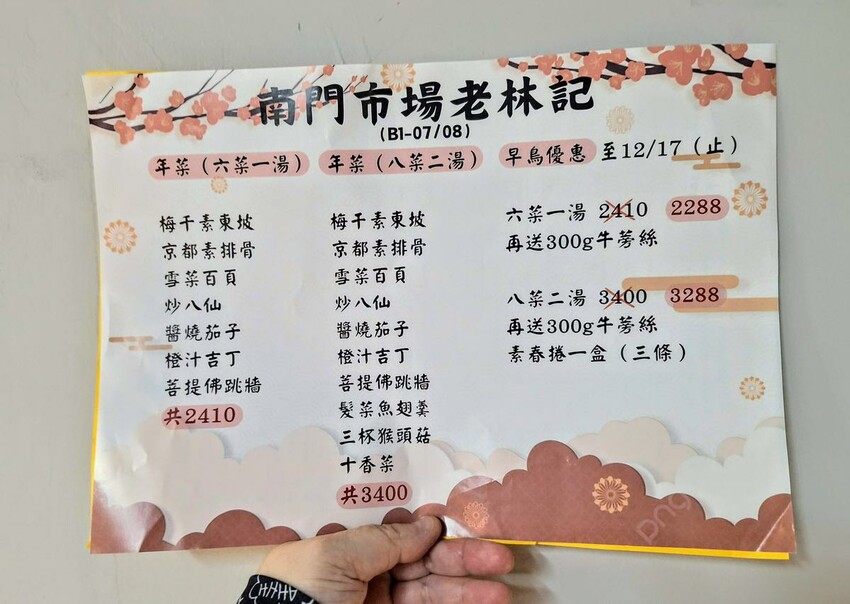 南門市場老林記
(B1-07/08)
年菜（六菜一湯）
梅干素東坡
京都素排骨
雪菜百頁
炒八仙
醬燒茄子
橙汁吉丁
菩提佛跳牆
共2410
年菜（八菜二湯）
梅干素東坡
京都素排骨
雪菜百頁
炒八仙
醬燒茄子
橙汁吉丁
菩提佛跳牆
髮菜魚翅羹
三杯猴頭菇
十香菜
共3400
早鳥優惠 至12/17（止）
六菜一湯 2410 2288
再送300g牛蒡絲
八菜二湯 3400 3288
再送300g牛蒡絲
素春捲一盒（三條）
png
AHHH